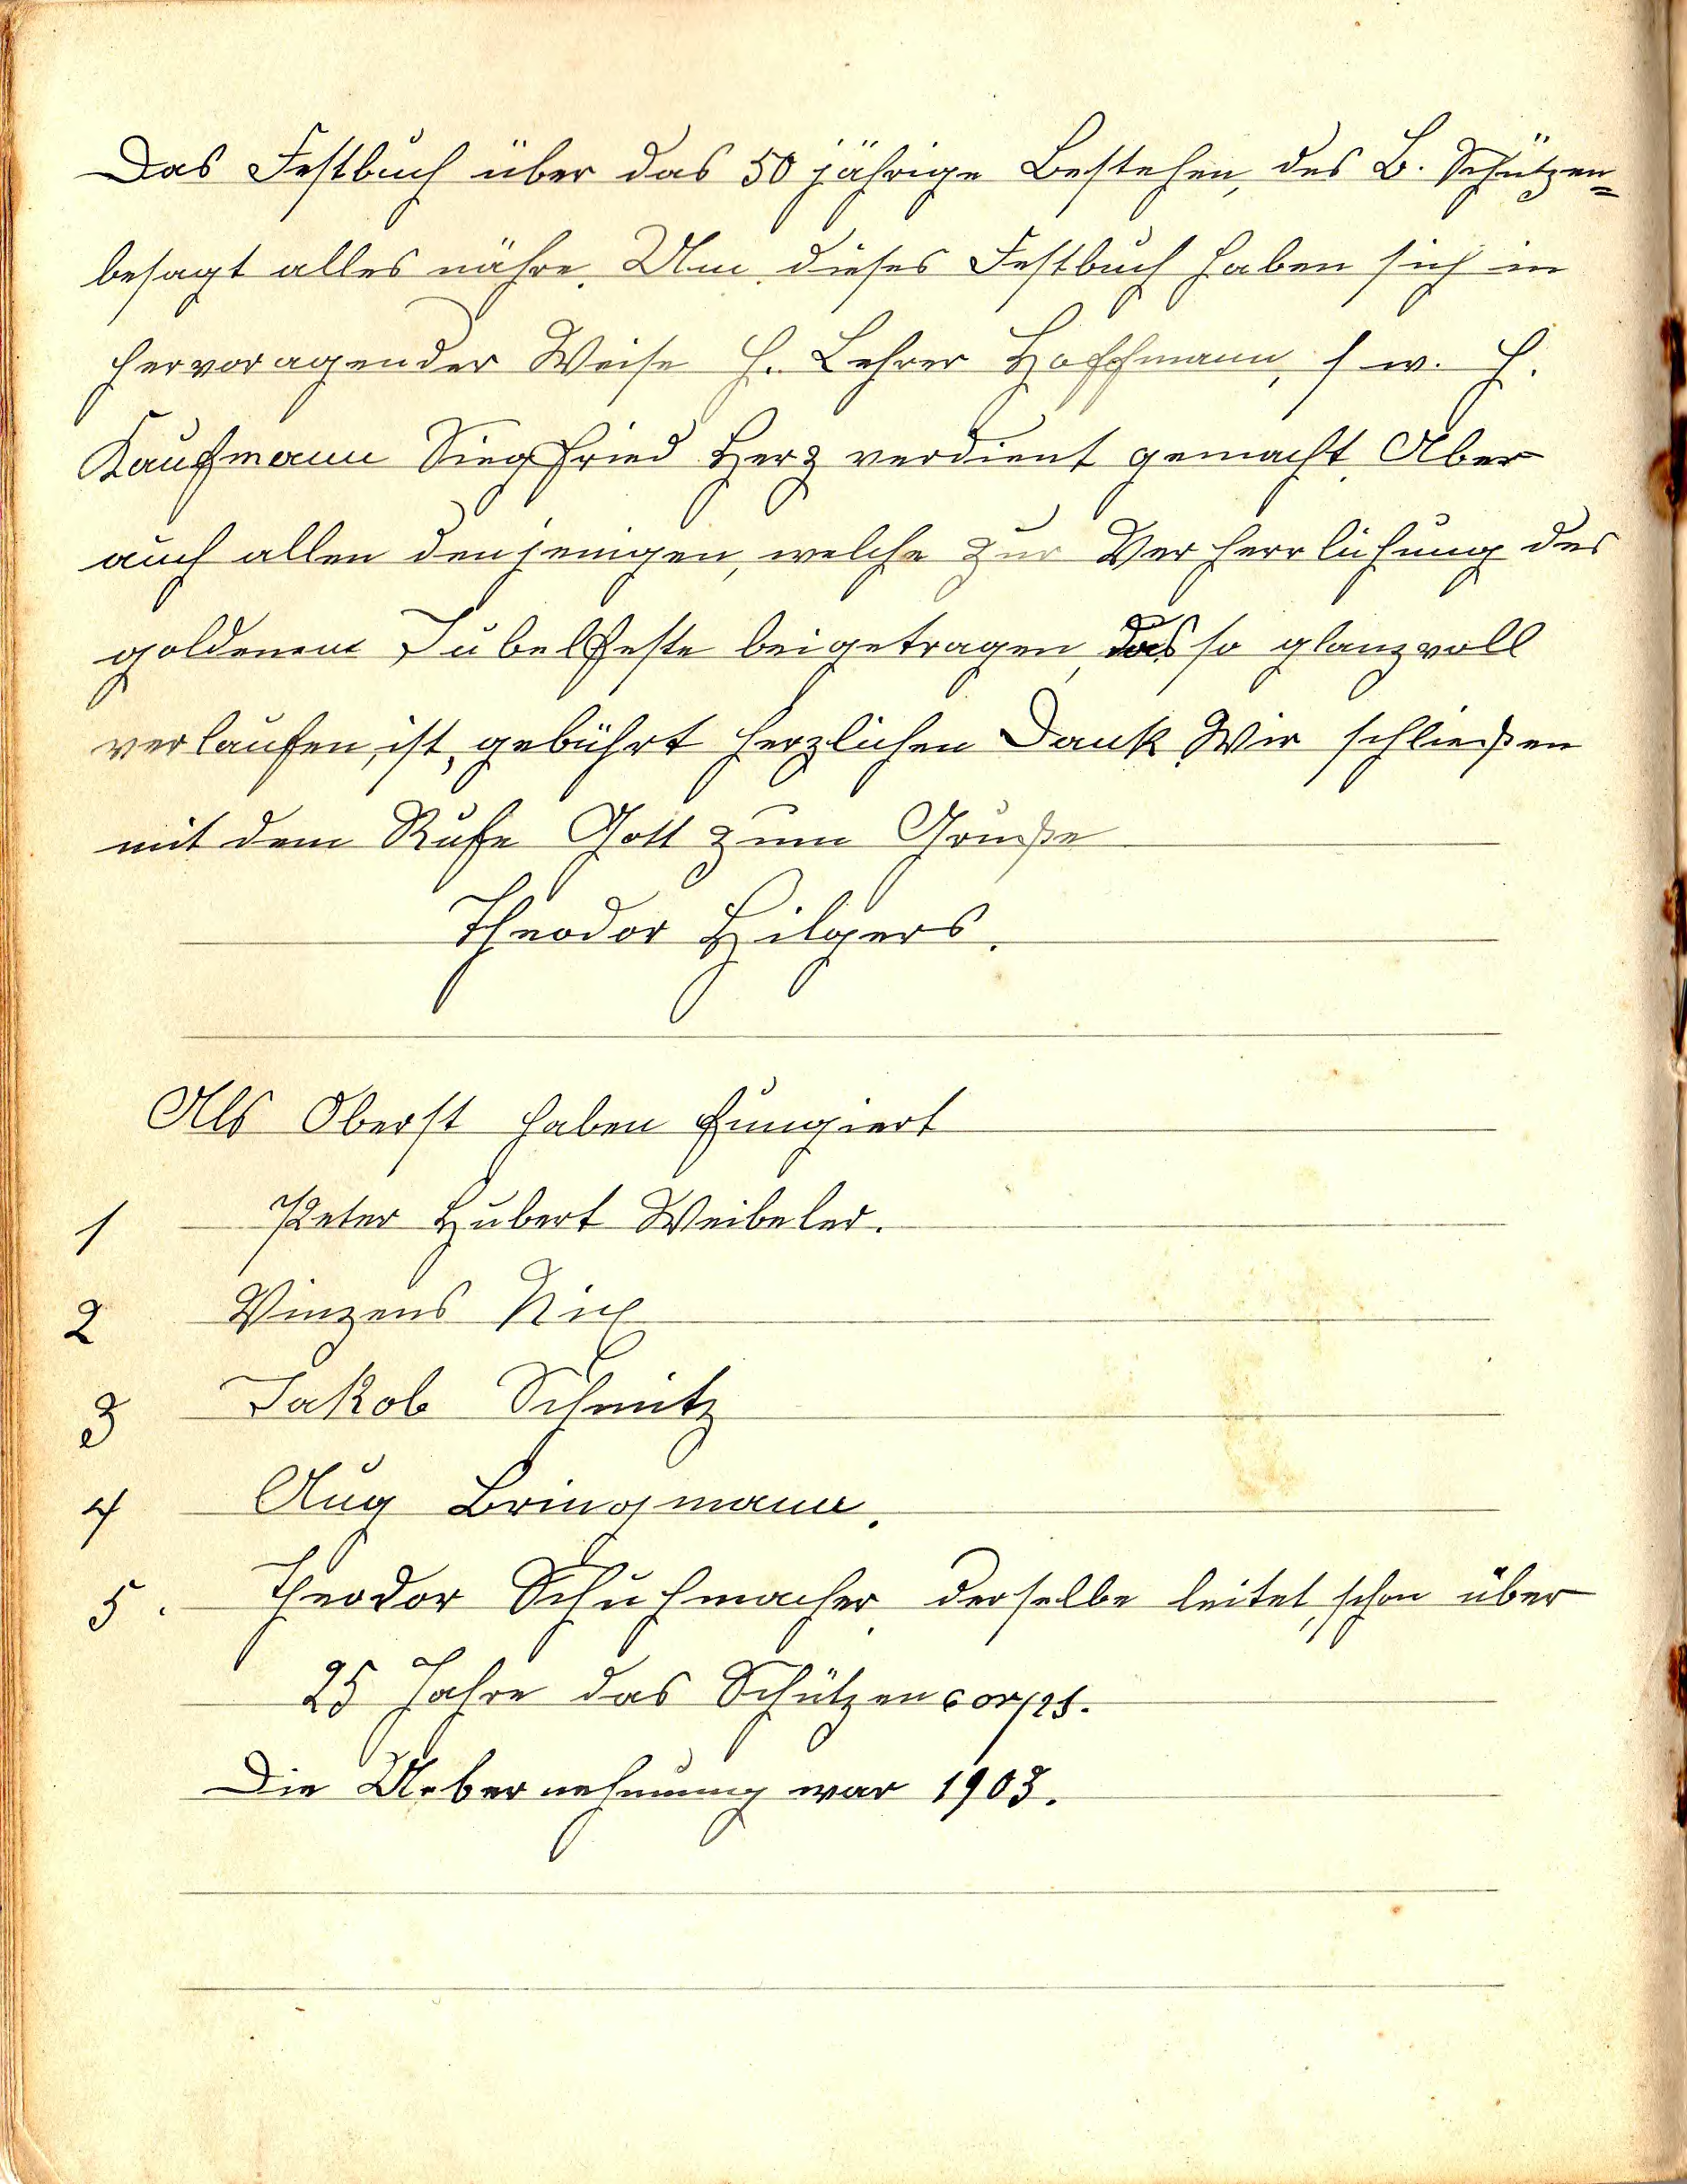 Das Festbuch über das 50 jährige Bestehen, des B. Schützen=
besagt alles nähre. Um dieses Festbuch haben sich in
hervoragender Weise H. Lehrer Hoffmann, s w. H.
Kaufmann Siegfried Herz verdient gemacht. Aber
auch allen denjenigen, welche zur Verherrlichung des
goldenem Jubelfeste beigetragen, das so glanzvoll
verlaufen, ist, gebührt herzlichen Dank. Wir schließen
mit dem Rufe Gott zum Gruße
Theodor Hilgers.
Als Oberst haben fungiert
1 Peter Hubert Weibeler.
2 Vinzens Nix
3 Jakob Schmitz
4 Aug Bringmann.
5. Theodor Schuhmacher, derselbe leitet, schon über
25 Jahre das Schützencorps.
Die Uebernehmung war 1903.